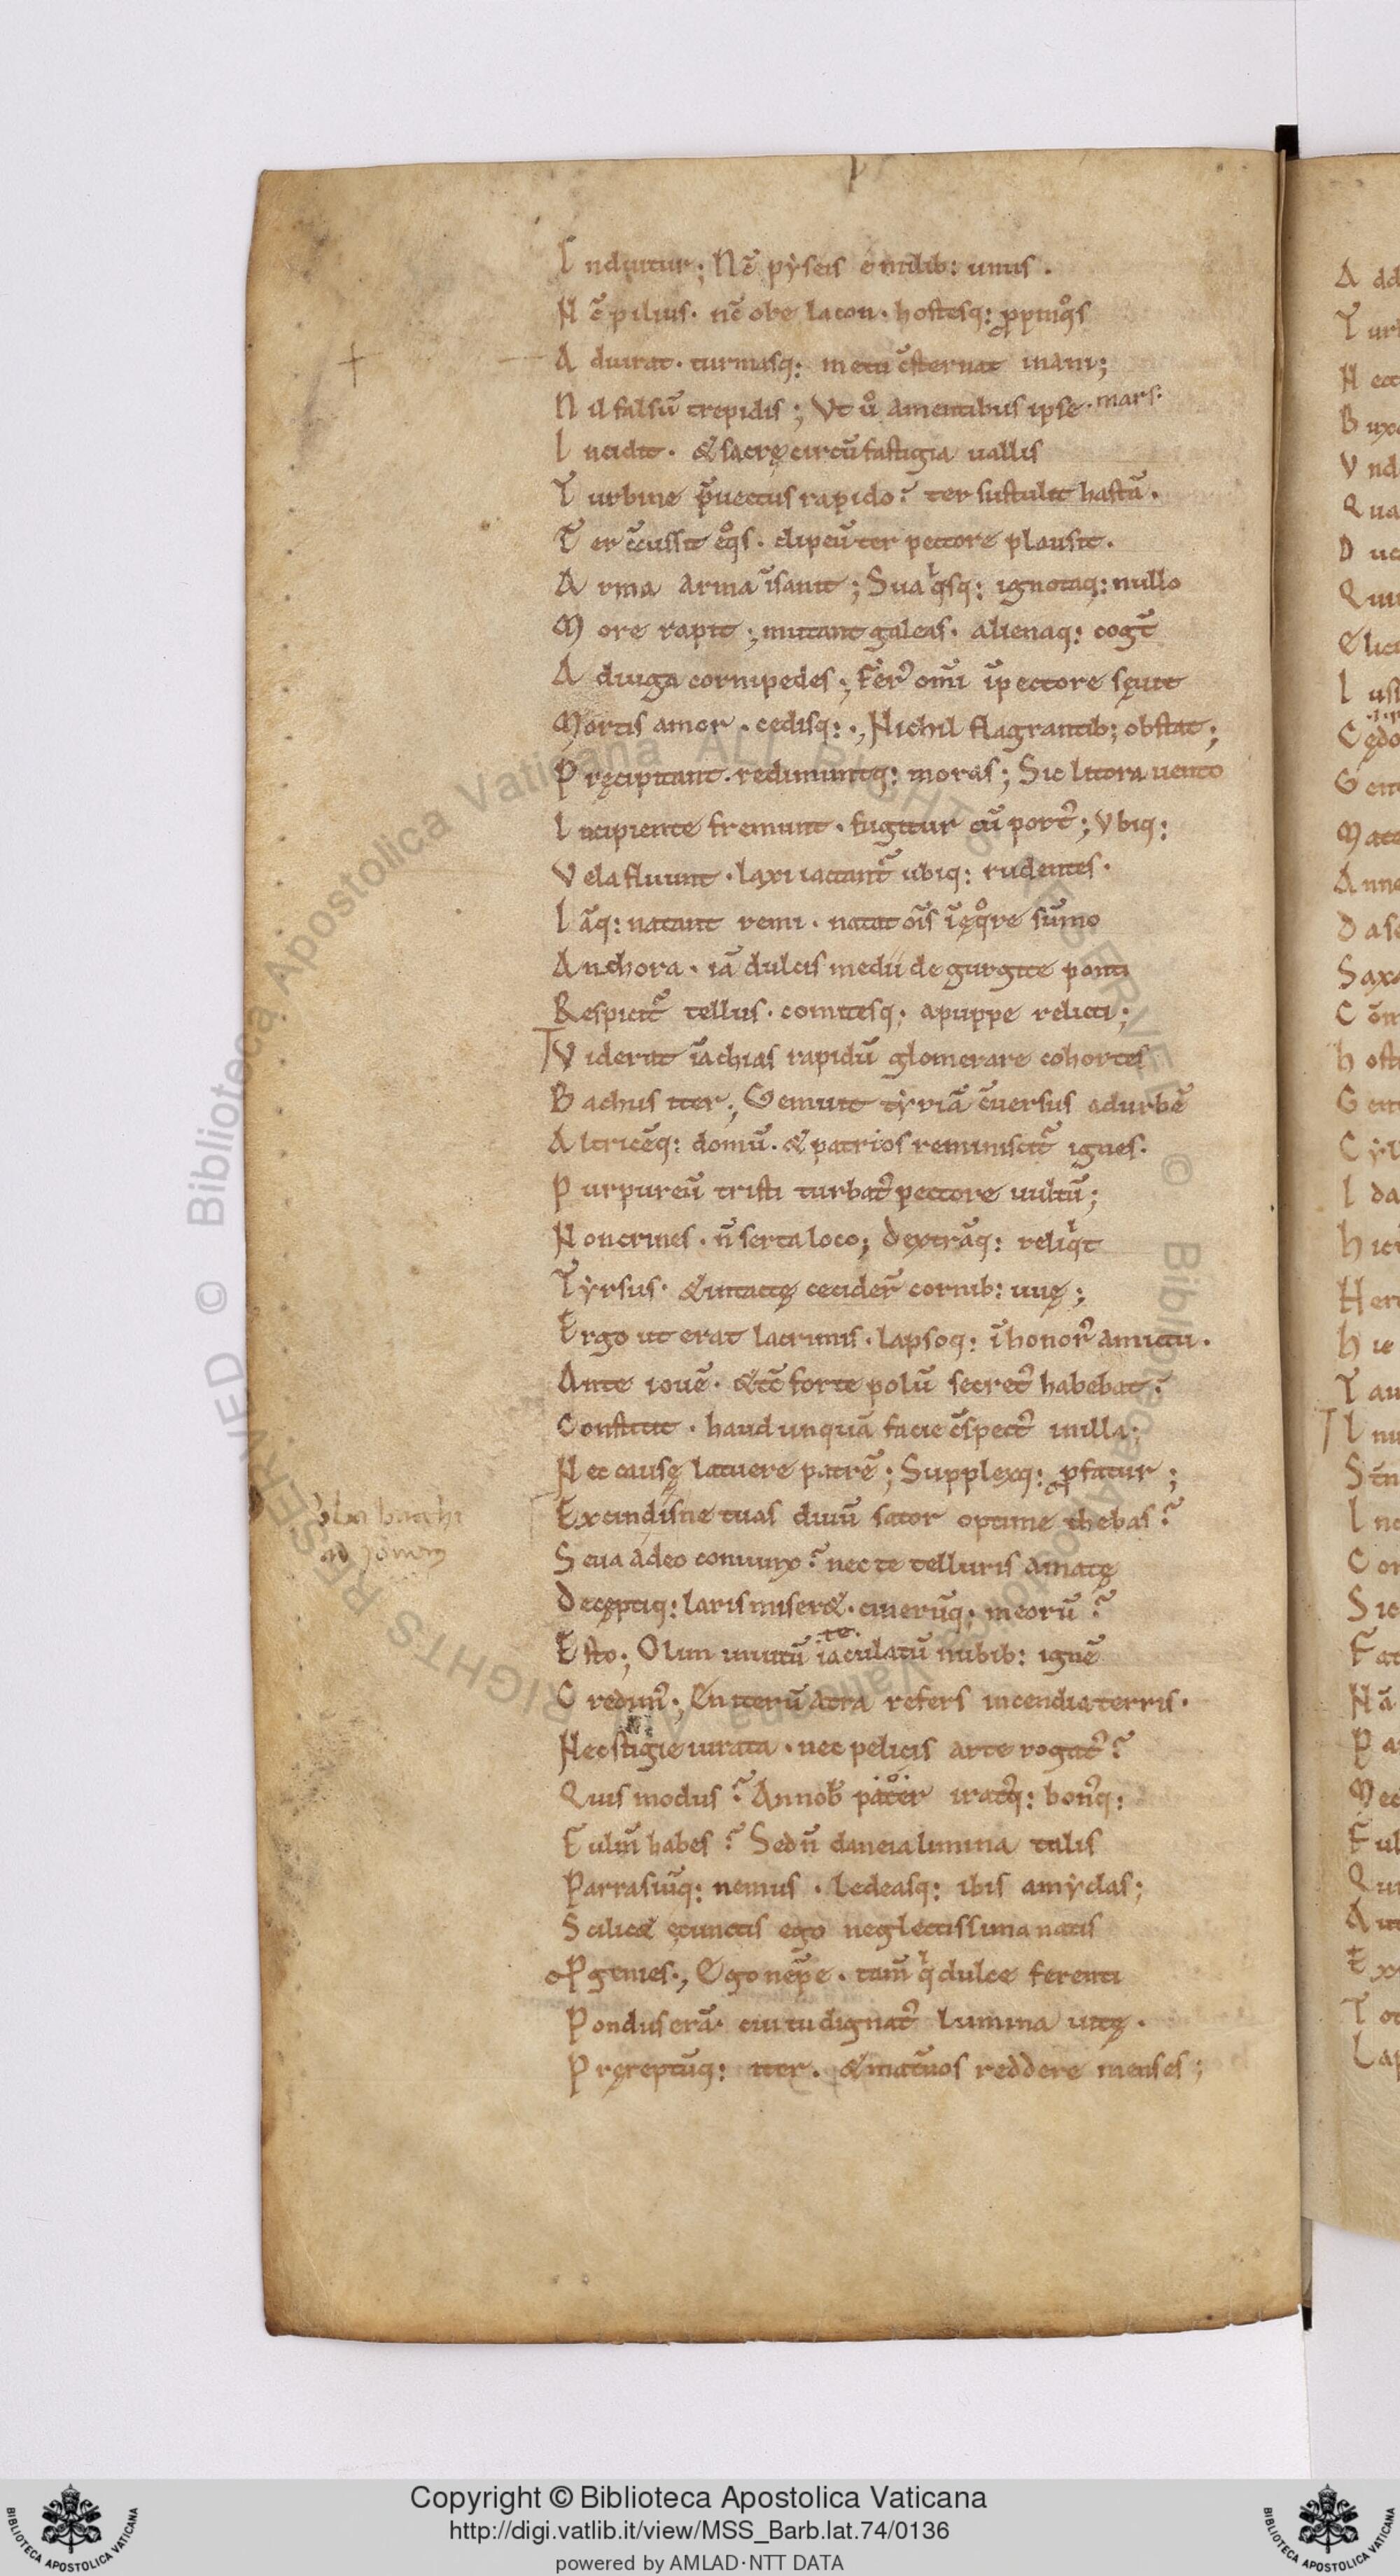 I nduitur; Nc̄ pẏseis e milib: unus.
N c̄ pilius. nc̄ obe lacon. hostesq: ꝓpinq̊s
A duirat. turmasq: metu c̄sternat inani;
N il falsū trepidis; Vt ů amentibus ipse .mars.
I ncidit. & sacrę circū fastigia uallis
T urbine p̄uectus rapido? ter sustulit hastā.
T er c̄cussit eq̊s. clipeū ter pectore plausit.
A rma arma īsanit; Sua qͥsq: ignotaq: nullo
M ore rapit; mutant galeas. alienaq: cogt̄
A d iuga cornipedes; Fer᷒ om̄i īpectore sęuit
Mortis amor. cedisq:., Nichil flagrantib; obstat;
P ręcipitant. redimuntq: moras; Sic litora uento
I ncipiente fremunt. fugitur cū port᷒; Vbiq:
V ela fluunt. laxi iactant᷑ ubiq: rudentes.
I āq: natant remi. natat oīs īęq̊re sūmo
Anchora. iā dulcis medii de gurgite ponti
Respicit᷑ tellus. comitesq; apuppe relicti;
Viderat īachias rapidū glomerare cohortes
B achus iter; Gemuit tẏriā c̄uersus adurbē
A ltricēq: domū. & patrios reminiscit᷑ ignes.
P urpureū tristi turbat᷒ pectore uultū;
N oncrines. n̄ serta loco; dextrāq: reliqͥt
T ẏrsus. & intactę cecider̄ cornib: uuę;
Ergo ut erat lacrimis. lapsoq: īhonor᷒ amictu.
Ante iouē. & tc̄ forte polū secret᷒ habebat?
Constitit. haud unquā facie c̄spect᷒ in illa;
Nec causę latuere patrē; Supplexq: ꝓfatur;
Excindisne tuas diuū sator optime thebas?
S eua adeo coniunx? nec te telluris amatę
Decęptiq: laris miseret. cinerūq; meorū?
Esto; Olim inuitū iaculatū nubib: ignē
te.
C redim᷒; En iterū atra refers incendia terris.
Nec stigie iurata. nec pelicis arte rogat᷒?
Quis modus? An nob̄ pater irat᷒q: bon᷒q:
F ulm̄ habes? Sed n̄ daneia lumina talis
Parrasiūq: nemus. ledeasq: ibis amẏclas;
S cilicet ęcunctis ego neglectissima natis
Pgenies., Ego nēpe. tam̄ qͥ dulce ferenti
Pondus erā. cui tu dignat᷒ lumina uitę.
P ręreptūq: iter. & matuos reddere menses;
bachi
ad Jovem
Copyright © Biblioteca Apostolica Vaticana
http://digi.vatlib.it/view/MSS_Barb.lat.74/0136
powered by AMLAD·NTT DATA